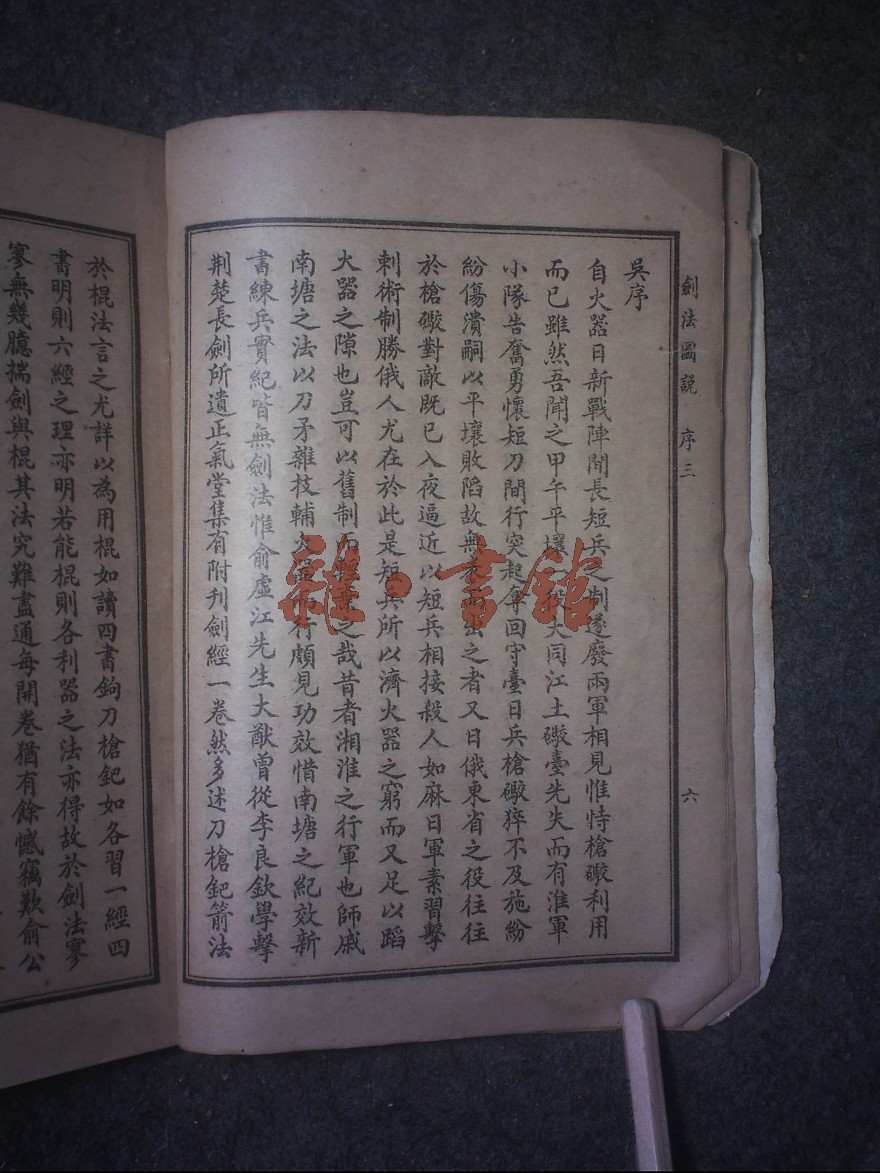 劍法圖說 序三 六
吳序
自火器日新戰陣間長短兵之制遂廢兩軍相見惟恃槍礮利用
而已雖然吾聞之甲午平壤役大同江土礮臺先失而有淮軍
小隊告奮勇懷短刀間行突起奪回守臺日兵槍礮猝不及施紛
紛傷潰嗣以平壤敗陷故無表而出之者又日俄東省之役往往
於槍礮對敵既已入夜逼近以短兵相接殺人如麻日軍素習擊
刺術制勝俄人尤在於此是短兵所以濟火器之窮而又足以蹈
火器之隙也豈可以舊制而輕棄之哉昔者湘淮之行軍也師戚
南塘之法以刀矛雜技輔火器而行頗見功效惜南塘之紀效新
書練兵實紀皆無劍法惟俞虛江先生大猷曾從李良欽學擊
荆楚長劍所遺正氣堂集有附刊劍經一卷然多述刀槍鈀箭法
於棍法言之尤詳以為用棍如讀四書鉤刀槍鈀如各習一經四
書明則六經之理亦明若能棍則各利器之法亦得故於劍法寥
寥無幾臆揣劍與棍其法究難盡通每開卷猶有餘憾竊歎俞公
雜·書館